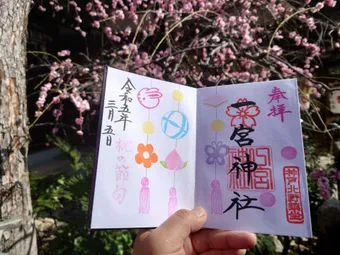 奉拝
一宮神社
令和五年
三月五日
桃の節句